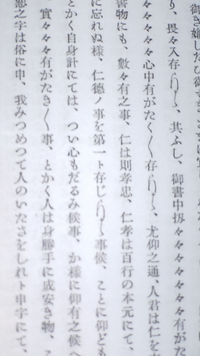 り、畏々入存〳〵、其ふし、御書中扨々々々々々有がた
々々々々々心中有がたく〳〵存〳〵、尤仰之通、人君は仁を
書物にも、數々有之事、仁は則孝忠、仁孝は百行の本元にて、
に忘れぬ様、仁德ノ事を第一ト存じ〳〵事候、ことに御ども
とかく自身計にては、つい心もだるみ候事、か様に仰有之候へ
實々々有がたき〳〵事、とかく人は身勝手に成安き物、こ
恕之字は俗に申、我みつめつて人のいたさをしれト申にて、